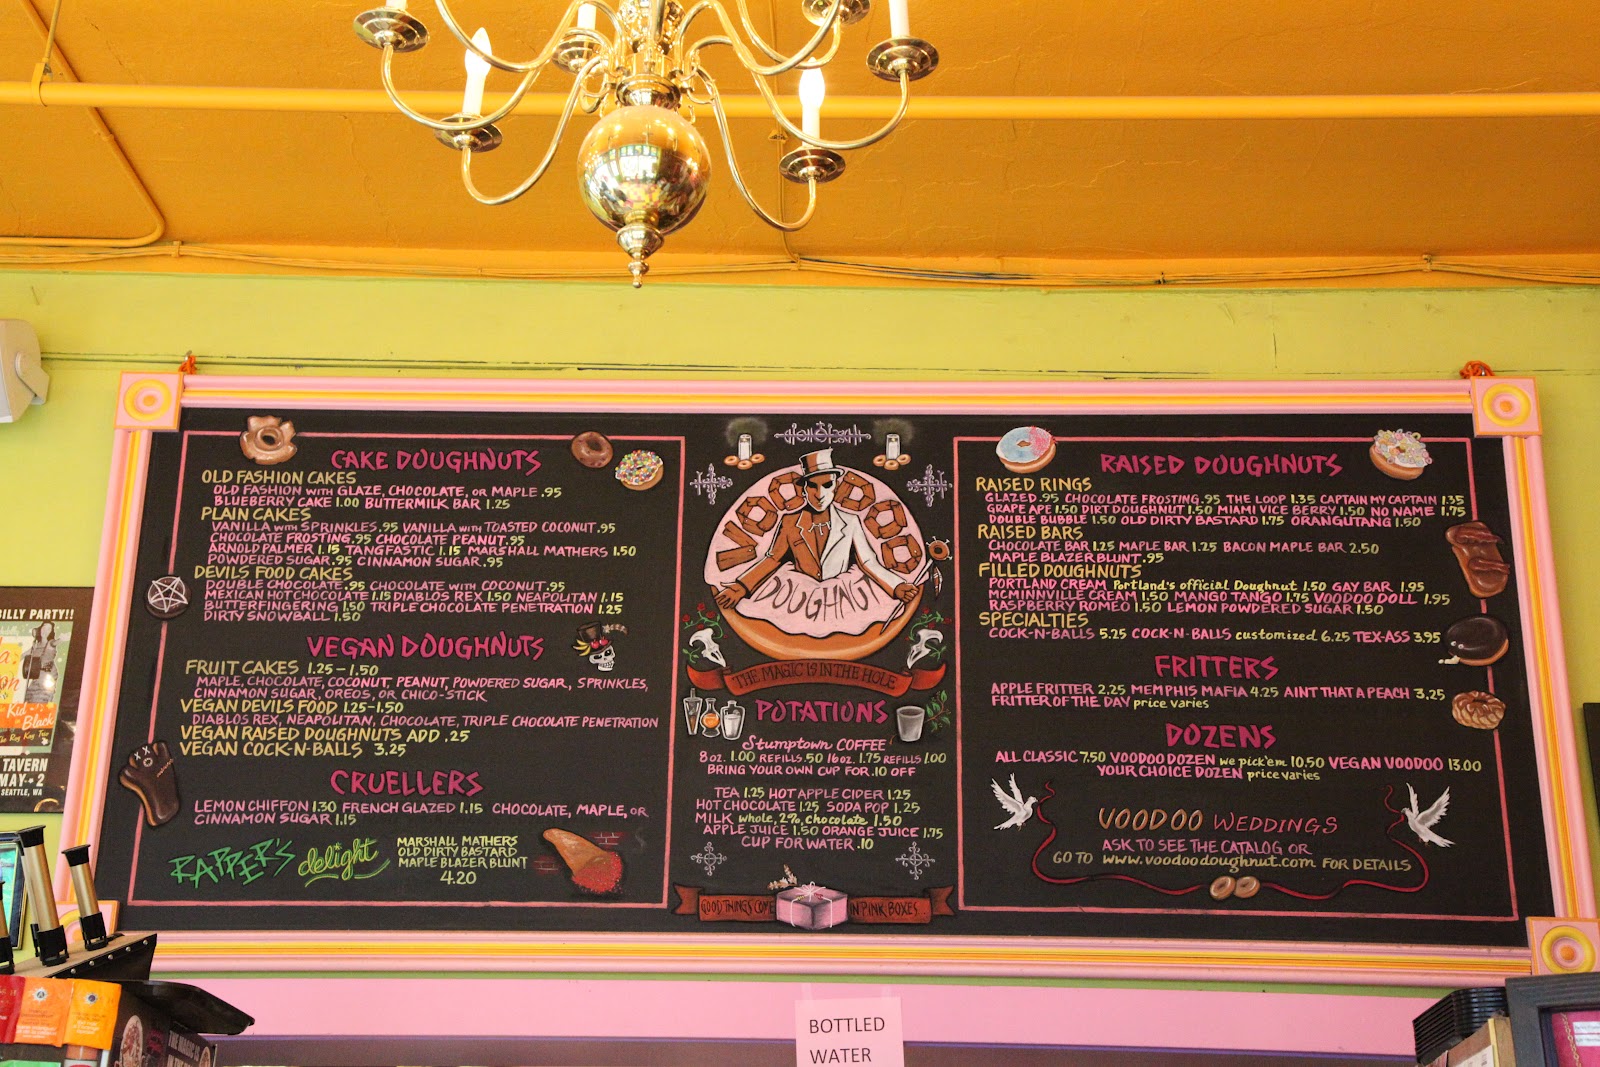 CAKE DOUGHNUTS
OLD FASHION CAKES
OLD FASHION WITH GLAZE, CHOCOLATE, OR MAPLE .95
BLUEBERRY CAKE 1.00 BUTTERMILK BAR 1.25
PLAIN CAKES
VANILLA WITH SPRINKLES .95 VANILLA WITH TOASTED COCONUT .95
CHOCOLATE FROSTING .95 CHOCOLATE PEANUT .95
ARNOLD PALMER 1.15 TANGFASTIC 1.15 MARSHALL MATHERS 1.50
POWDERED SUGAR .95 CINNAMON SUGAR .95
DEVILS FOOD CAKES
DOUBLE CHOCOLATE .95 CHOCOLATE WITH COCONUT .95
MEXICAN HOT CHOCOLATE 1.15 DIABLOS REX 1.50 NEAPOLITAN 1.15
BUTTERFINGERING 1.50 TRIPLE CHOCOLATE PENETRATION 1.25
DIRTY SNOWBALL 1.50
VEGAN DOUGHNUTS
FRUIT CAKES 1.25-1.50
MAPLE, CHOCOLATE, COCONUT, PEANUT, POWDERED SUGAR, SPRINKLES,
CINNAMON SUGAR, OREOS, OR CHICO-STICK
VEGAN DEVILS FOOD 1.25-1.50
DIABLOS REX, NEAPOLITAN, CHOCOLATE, TRIPLE CHOCOLATE PENETRATION
VEGAN RAISED DOUGHNUTS ADD .25
VEGAN COCK-N-BALLS 3.25
CRUELLERS
LEMON CHIFFON 1.30 FRENCH GLAZED 1.15 CHOCOLATE, MAPLE, OR
CINNAMON SUGAR 1.15
RAPPER'S delight
MARSHALL MATHERS
OLD DIRTY BASTARD
MAPLE BLAZER BLUNT
4.20
VOODOO
DOUGHNUT
THE MAGIC IS IN THE HOLE
POTATIONS
Stumptown COFFEE
8 oz. 1.00 REFILLS .50 16 oz. 1.75 REFILLS 1.00
BRING YOUR OWN CUP FOR .10 OFF
TEA 1.25 HOT APPLE CIDER 1.25
HOT CHOCOLATE 1.25 SODA POP 1.25
MILK whole, 2%, chocolate 1.50
APPLE JUICE 1.50 ORANGE JUICE 1.75
CUP FOR WATER .10
GOOD THINGS COME IN PINK BOXES...
RAISED DOUGHNUTS
RAISED RINGS
GLAZED .95 CHOCOLATE FROSTING .95 THE LOOP 1.35 CAPTAIN MY CAPTAIN 1.35
GRAPE APE 1.50 DIRT DOUGHNUT 1.50 MIAMI VICE BERRY 1.50 NO NAME 1.75
DOUBLE BUBBLE 1.50 OLD DIRTY BASTARD 1.75 ORANGUTANG 1.50
RAISED BARS
CHOCOLATE BAR 1.25 MAPLE BAR 1.25 BACON MAPLE BAR 2.50
MAPLE BLAZER BLUNT .95
FILLED DOUGHNUTS
PORTLAND CREAM Portland's official Doughnut 1.50 GAY BAR 1.95
MCMINNVILLE CREAM 1.50 MANGO TANGO 1.75 VOODOO DOLL 1.95
RASPBERRY ROMEO 1.50 LEMON POWDERED SUGAR 1.50
SPECIALTIES
COCK-N-BALLS 5.25 COCK-N-BALLS customized 6.25 TEX-ASS 3.95
FRITTERS
APPLE FRITTER 2.25 MEMPHIS MAFIA 4.25 AINT THAT A PEACH 3.25
FRITTER OF THE DAY price varies
DOZENS
ALL CLASSIC 7.50 VOODOO DOZEN we pick'em 10.50 VEGAN VOODOO 13.00
YOUR CHOICE DOZEN price varies
VOODOO WEDDINGS
ASK TO SEE THE CATALOG OR
GO TO www.voodoodoughnut.com FOR DETAILS
BILLY PARTY!!
Kid
Black
TAVERN
MAY 2
SEATTLE, WA
THE MAGIC IS
BOTTLED
WATER